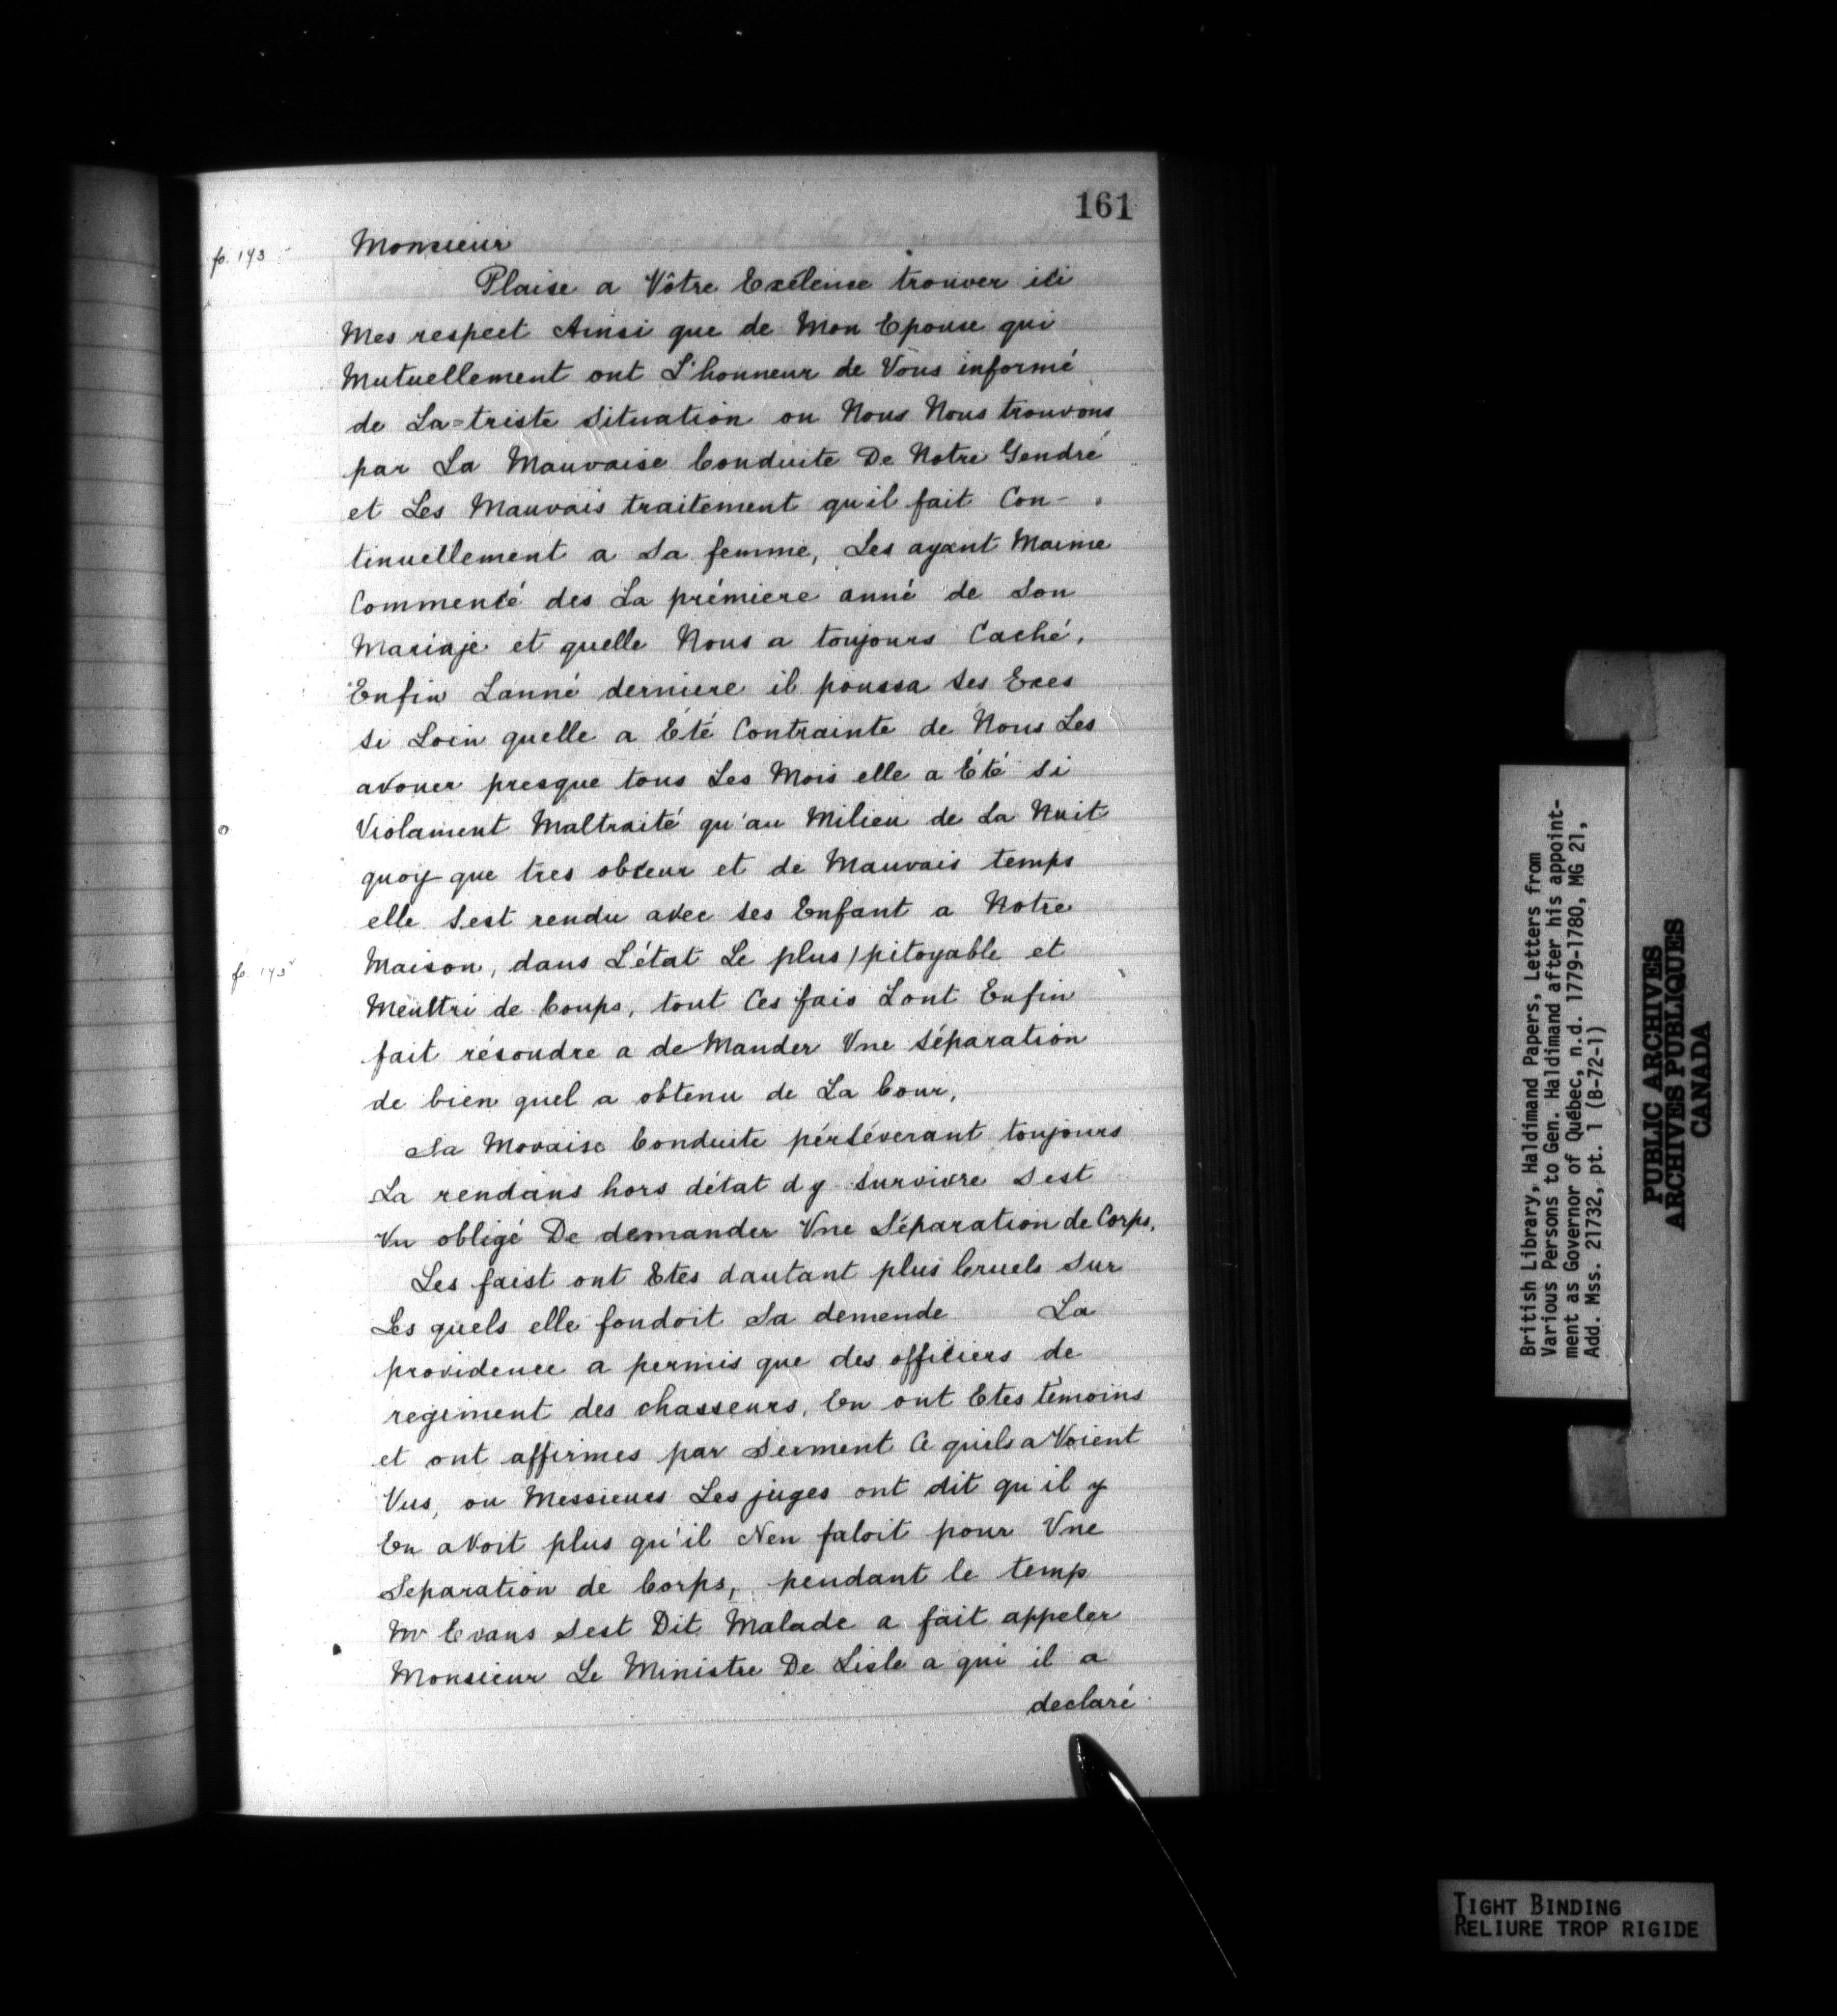 161
fo. 193
Monsieur
Plaise a Vôtre Exélense trouver ici
Mes respect Ainsi que de Mon Epouse qui
Mutuellement ont L'honneur de Vous informé
de La=triste Situation ou Nous Nous trouvons
par La Mauvaise Conduite De Notre Gendre
et Les Mauvais traitement qu'il fait Con-
tinuellement a Sa femme, Les ayant Maime
Commencé des La prémiere anné de Son
Mariaje et quelle Nous a toujours Caché.
Enfin Lanné derniere il poussa Ses Exes
Si Loin quelle a Été Contrainte de Nous Les
avouer presque tous Les Mois elle a Été Si
Violament Maltraité qu'au Milieu de La Nuit
quoy que tres obceur et de Mauvais temps
elle Sest rendu avec Ses Enfant a Notre
fo. 193v
Maison, dans L'état Le plus/pitoyable et
Meultri de Coups, tout Ces fais Lont Enfin
fait résoudre a de Mander Vne Séparation
de bien quel a obtenu de La Cour,
Sa Movaise Conduite pérséverant toujours
La rendans hors détat d y Survivre Sest
Vu obligé De demander Vne Séparation de Corps.
Les faist ont Etes dautant plus Cruels Sur
Les quels elle fondoit Sa demende La
providence a permis que des officiers de
regiment des chasseurs, En ont Etes témoins
et ont affirmes par Serment Ce quels a Voient
Vus, ou Messieurs Les juges ont dit qu'il y
En avoit plus qu'il Nen faloit pour Vne
Separation de Corps, pendant le temp
Mr Evans Sest Dit Malade a fait appeler
Monsieur Le Ministre De Lisle a qui il a
declaré
British Library, Haldimand Papers, Letters from
Various Persons to Gen. Haldimand after his appoint-
ment as Governor of Québec, n.d. 1779-1780, MG 21,
Add. Mss. 21732, pt. 1 (B-72-1)
PUBLIC ARCHIVES
ARCHIVES PUBLIQUES
CANADA
TIGHT BINDING
RELIURE TROP RIGIDE